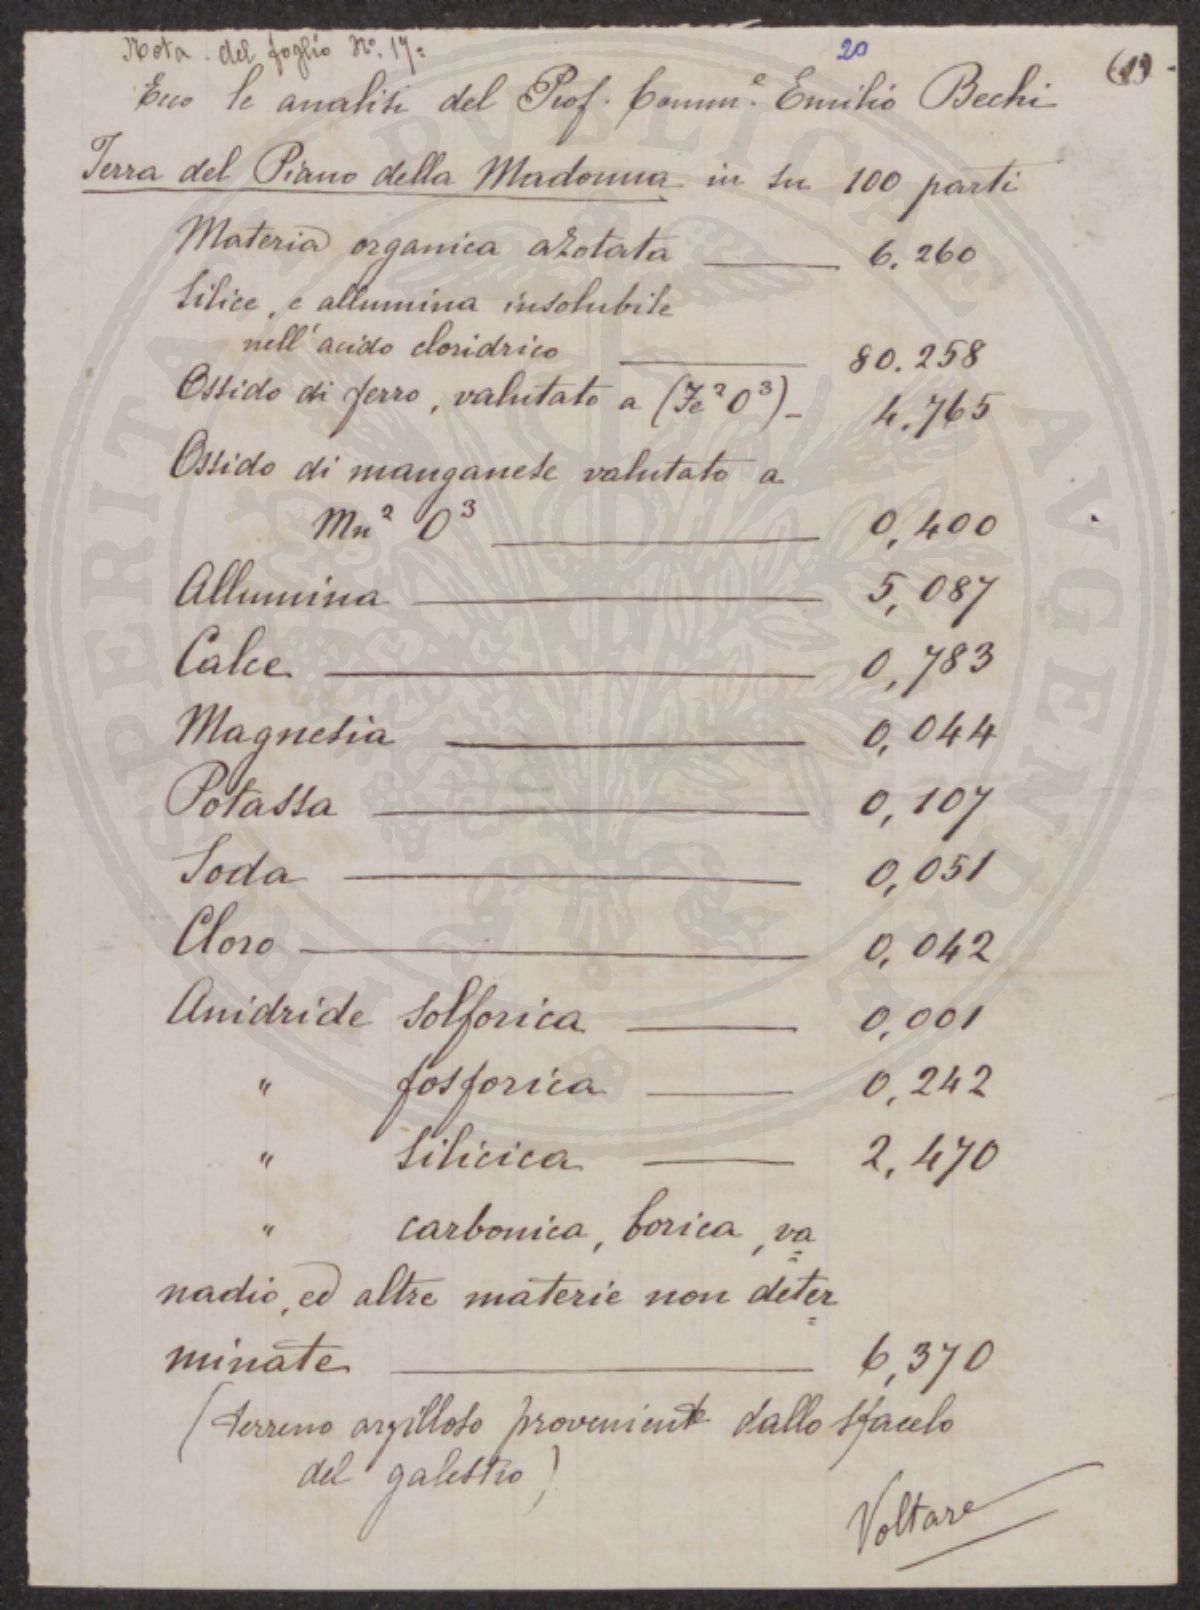 Nota del foglio Nº. 17=
20
(19)
Ecco le analisi del Prof. Comm.e Emilio Bechi
Terra del Piano della Madonna in su 100 parti
Materia organica azotata ____ 6.260
Silice, e allumina insolubile
nell'acido cloridrico ____ 80.258
Ossido di ferro, valutato a (Fe² O³) - 4,765
Ossido di manganese valutato a
Mn² O³ ____ 0,400
Allumina ____ 5,087
Calce ____ 0,783
Magnesia ____ 0,044
Potassa ____ 0,107
Soda ____ 0,051
Cloro ____ 0,042
Anidride solforica ____ 0,001
" fosforica ____ 0,242
" silicica ____ 2,470
" carbonica, borica, va=
nadio, ed altre materie non deter=
minate ____ 6,370
(terreno argilloso proveniente dallo sfacelo
del galestro)
Voltare
PUBLICAE
PROSPERITATI
AVGENDAE